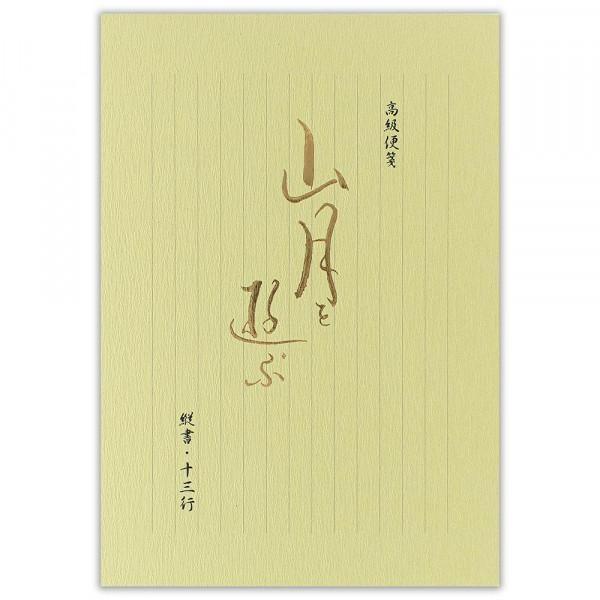 高級便箋
山月を
遊ぶ
縦書・十三行